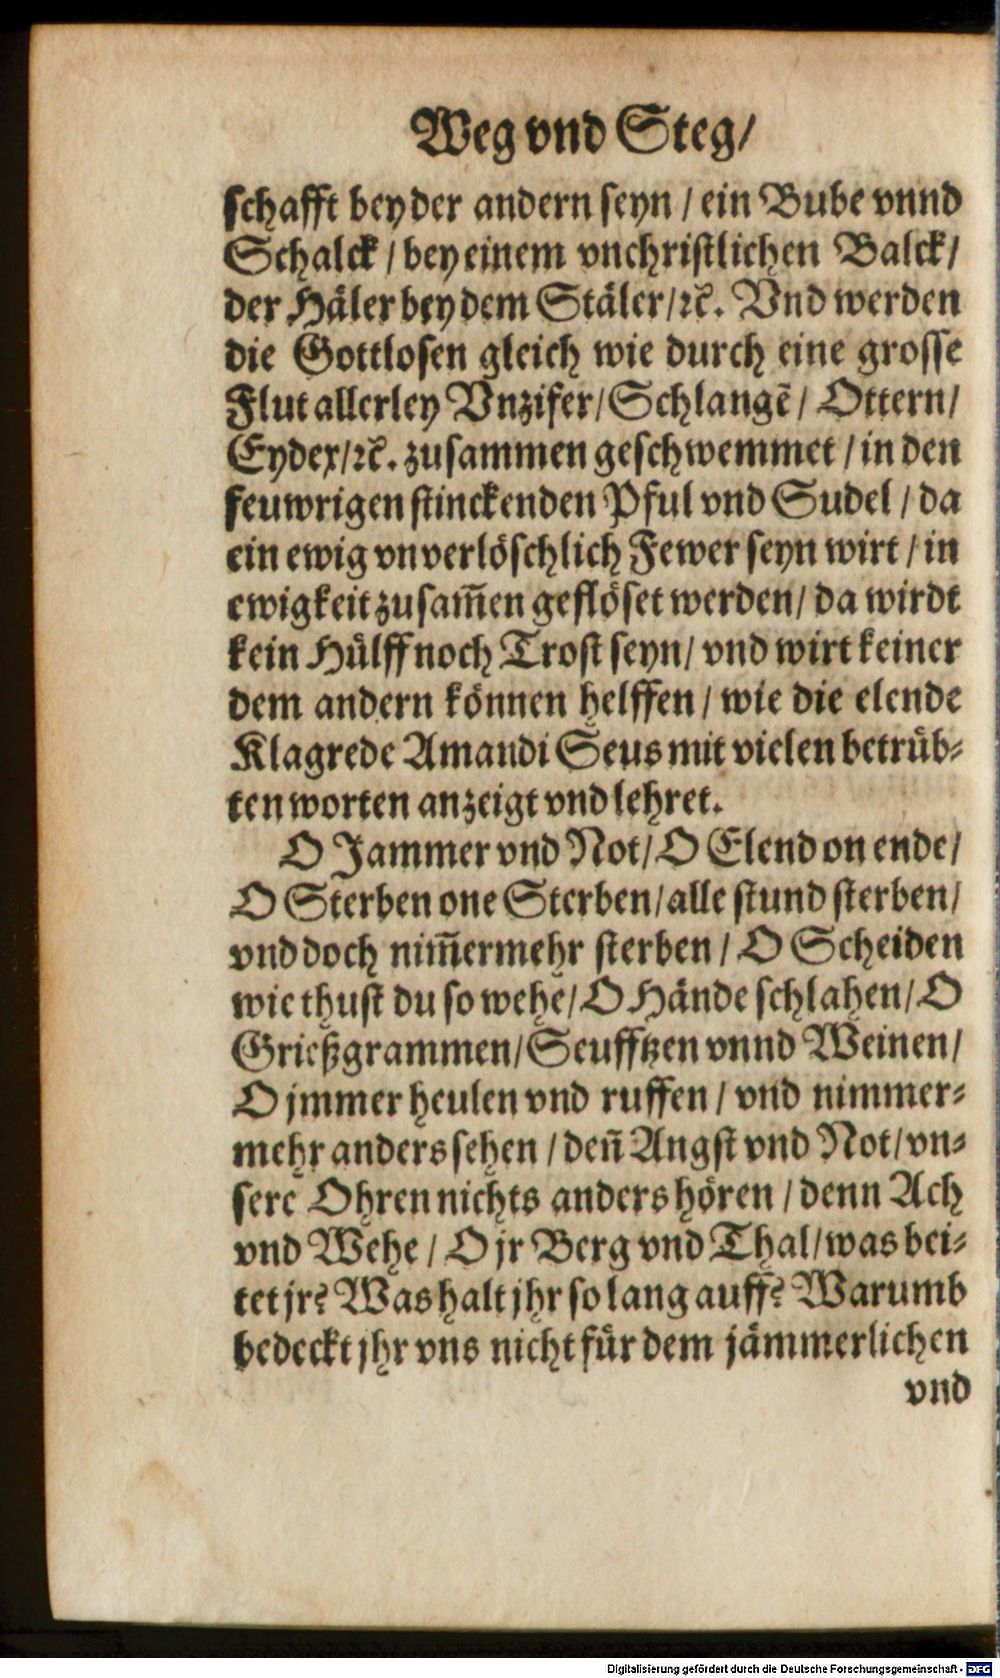 Weg vnd Steg/
schafft bey der andern seyn / ein Bube vnnd
Schalck / bey einem vnchristlichen Balck/
der Häler bey dem Stäler/ꝛc. Vnd werden
die Gottlosen gleich wie durch eine grosse
Flut allerley Vnzifer/Schlangẽ/ Ottern/
Eydex/ꝛc. zusammen geschwemmet / in den
feuwrigen stinckenden Pful vnd Sudel / da
ein ewig vnverlöschlich Fewer seyn wirt / in
ewigkeit zusam̃en geflöset werden/ da wirdt
kein Hülff noch Trost seyn/ vnd wirt keiner
dem andern können helffen / wie die elende
Klagrede Amandi Seus mit vielen betrüb-
ten worten anzeigt vnd lehret.
O Jammer vnd Not/ O Elend on ende/
O Sterben one Sterben/alle stund sterben/
vnd doch nim̃ermehr sterben / O Scheiden
wie thust du so wehe/ O Hände schlahen/ O
Grießgrammen/Seufftzen vnnd Weinen/
O jmmer heulen vnd ruffen / vnd nimmer-
mehr anders sehen / den̄ Angst vnd Not/ vn-
sere Ohren nichts anders hören / denn Ach
vnd Wehe / O jr Berg vnd Thal/was bei-
tet jr? Was halt jhr so lang auff? Warumb
bedeckt jhr vns nicht für dem jämmerlichen
vnd
Digitalisierung gefördert durch die Deutsche Forschungsgemeinschaft - DFG